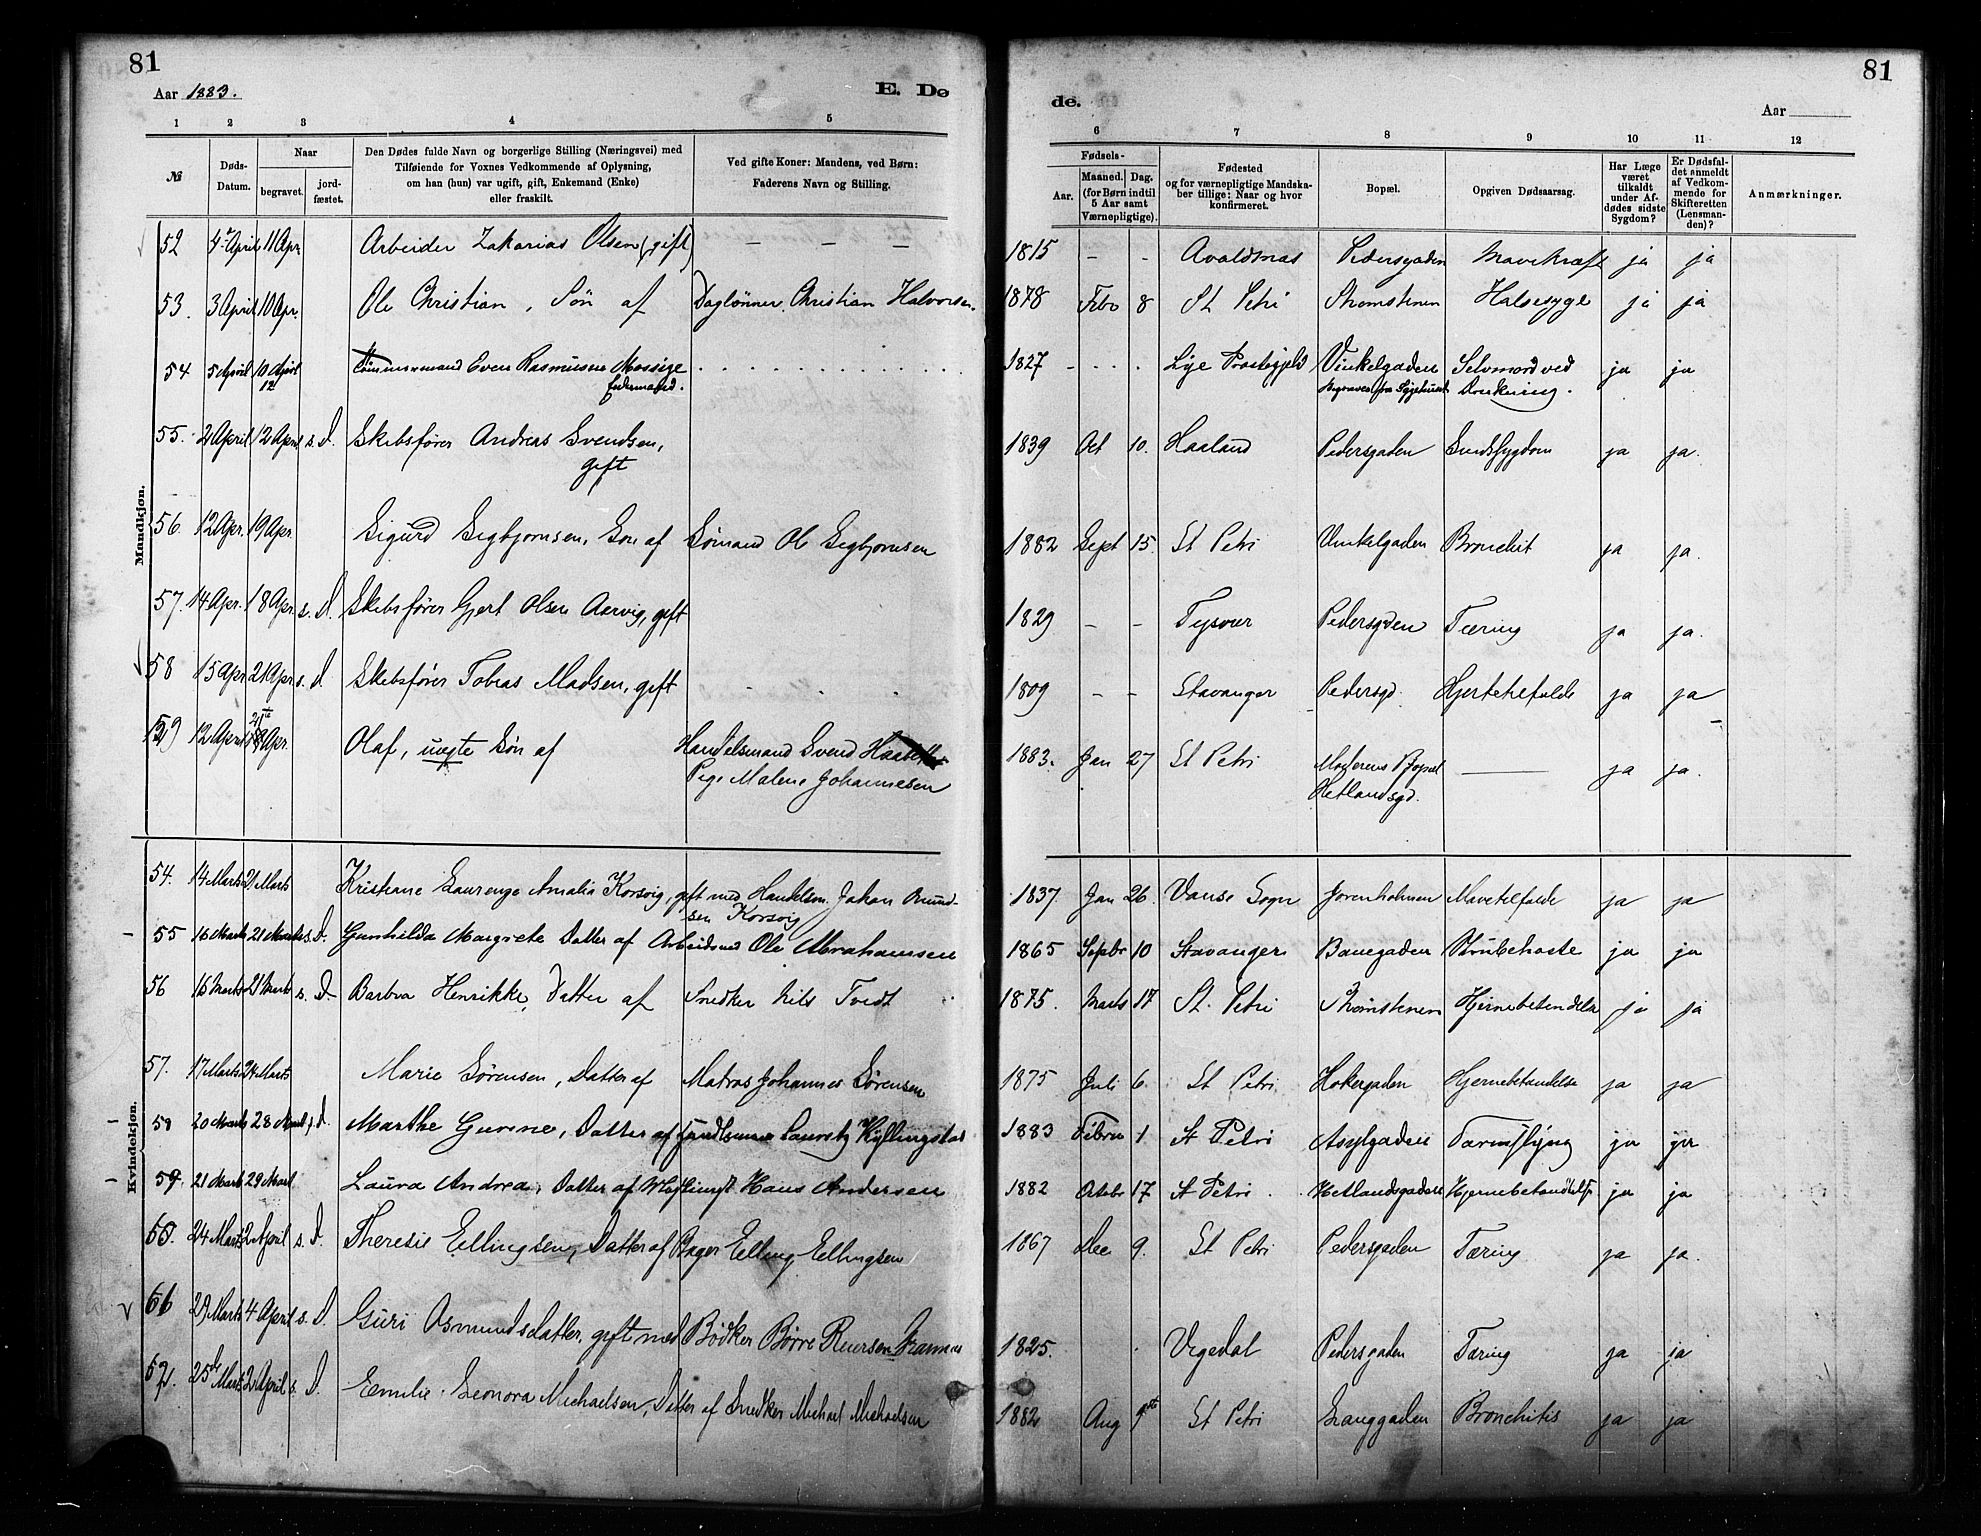 81
Aar 1883.
E. Dø
1 2 3 4 5
№
Døds-
Datum.
Naar
begravet.
jord-
fæstet.
Den Dødes fulde Navn og borgerlige Stilling (Næringsvei) med
Tilføiende for Voxnes Vedkommende af Oplysning,
om han (hun) var ugift, gift, Enkemand (Enke)
eller fraskilt.
Ved gifte Koner: Mandens, ved Børn:
Faderens Navn og Stilling.
Mandkjøn.
52 4 April 11 Apr Arbeider Zakarias Olsen (gift) — — —
53. 3 April 10 Apr. Ole Christian, Søn af Daglønner Christian Halvorsen.
54 5 April 10 April Tømmermand Even Rasmusen Mossige
12 Enkemand.
55. 2 April 12 April s. D. Skibsfører Andreas Svendsen,
gift
56 12 Apr. 19 Apr. Sigurd Sigbjornsen, Søn af Sømand Ole Sigbjornsen
57. 14 Apr. 18 Apr. s. D. Skibsfører Gjert Olsen Aarvig, gift
58 15 Apr 21 Apr. s. d Skibsfører Tobias Madsen, gift
59 12 April Apr. Olaf, uægte Søn af Handelsmand Svend
Pige Malene Johannesen
Kvindekjøn.
54. 14 Marts 21 Marts Kristiane Laurenze Amalia Korsvig, gift med Handelsm. Johan Amund-
sen Korsvig
55 16 Marts 21 Marts s. D. Gunhilda Margrete Datter af Arbeidsmd Ole Abrahamsen
56 16 Marts 21 Marts s. D. Barbra Henrikke, Datter af Snedker Nils Tvedt
57. 17 Marts 24 Marts Marie Sørensen, Datter af Matros Johannes Sørensen
58 20 Marts 28 Marts s. D. Marthe Gurine, Datter af Lauritz Kyllingstad
59. 21 Marts 29 Mart Laura Andrea, Datter af Hans Andersen
60. 24 Marts 2 April s. D. Theresie Ellingsen, Datter af Bager Elling Ellingsen
61 29 Marts 4 April s. D. Guri Asmundsdatter, gift med Bødker Børre Reiersen
62. 25de Marts 2 April s. D. Emilie Leonora Michaelsen, Datter af Snedker Michael Michaelsen
81
de.
Aar
6 7 8 9 10 11 12
Fødsels-
Aar.
Maaned. Dag.
(for Børn indtil
5 Aar samt
Værnepligtige).
Fødested
og for værnepligtige Mandska-
ber tillige: Naar og hvor
konfirmeret.
Bopæl.
Opgiven Dødsaarsag.
Har Læge
været
tilkaldt
under Af-
dødes sidste
Sygdom?
Er Dødsfal-
det anmeldt
af Vedkom-
mende for
Skifteretten
(Lensman-
den)?
Anmærkninger.
1815 - - Avaldsnes Pedersgaden Mavekræft ja ja
1878 Febr 8 St Petri Strømstenen Halsesyge ja ja
1827 Lye Præstegjeld Vinkelgaden Selvmord ved ja ja
Begraves fra Sygehuset Drukning.
1839 Oct 10. Haaland Pedersgaden Sindssygdom ja ja.
1882 Sept 15. St Petri Vinkelgaden Bronchit ja ja.
1829 - - Tysvær Pedersgden Tæring ja ja.
1809 - - Stavanger Pedersgd. Hjertetilfælde ja ja
1883. Jan 27 St Petri Moderens Bopæl — ja ja.
Hetlandsgd.
1837. Jan 26. Vanse Sogn Jorenholmen Mavetilfælde ja ja
1865 Septbr 10 Stavanger Banegaden Strubehoste ja ja
1875. Marts 17 St. Petri Strømstenen Hjernebetændelse ja ja
1875 Juli 6. St Petri Hokergaden Hjernebetændelse ja ja
1883 Febru 1 St Petri Asylgaden ja ja
1882 Octobr 17 St Petri Hetlandsgaden Hjernebetændelse ja ja
1867 Dec 9. St Petri Pedersgaden Tæring ja ja.
1825. Vegedal Pedersgaden Tæring ja ja
1882 Aug 1st St Petri Langgaden Bronchitis ja ja